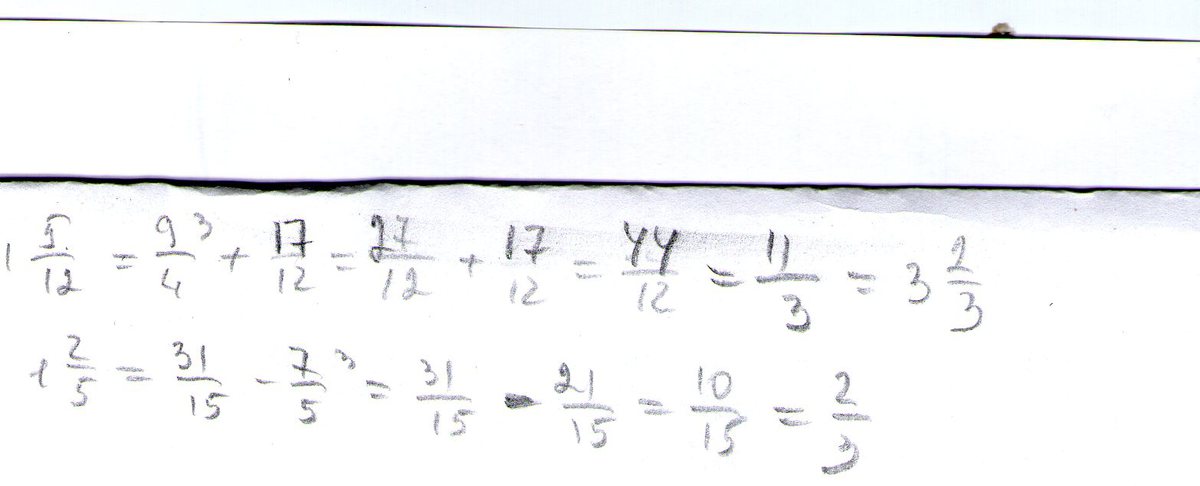 1 5/12 = 9/4 ³ + 17/12 = 27/12 + 17/12 = 44/12 = 11/3 = 3 2/3
1 2/5 = 31/15 - 7/5 ³ = 31/15 - 21/15 = 10/15 = 2/3